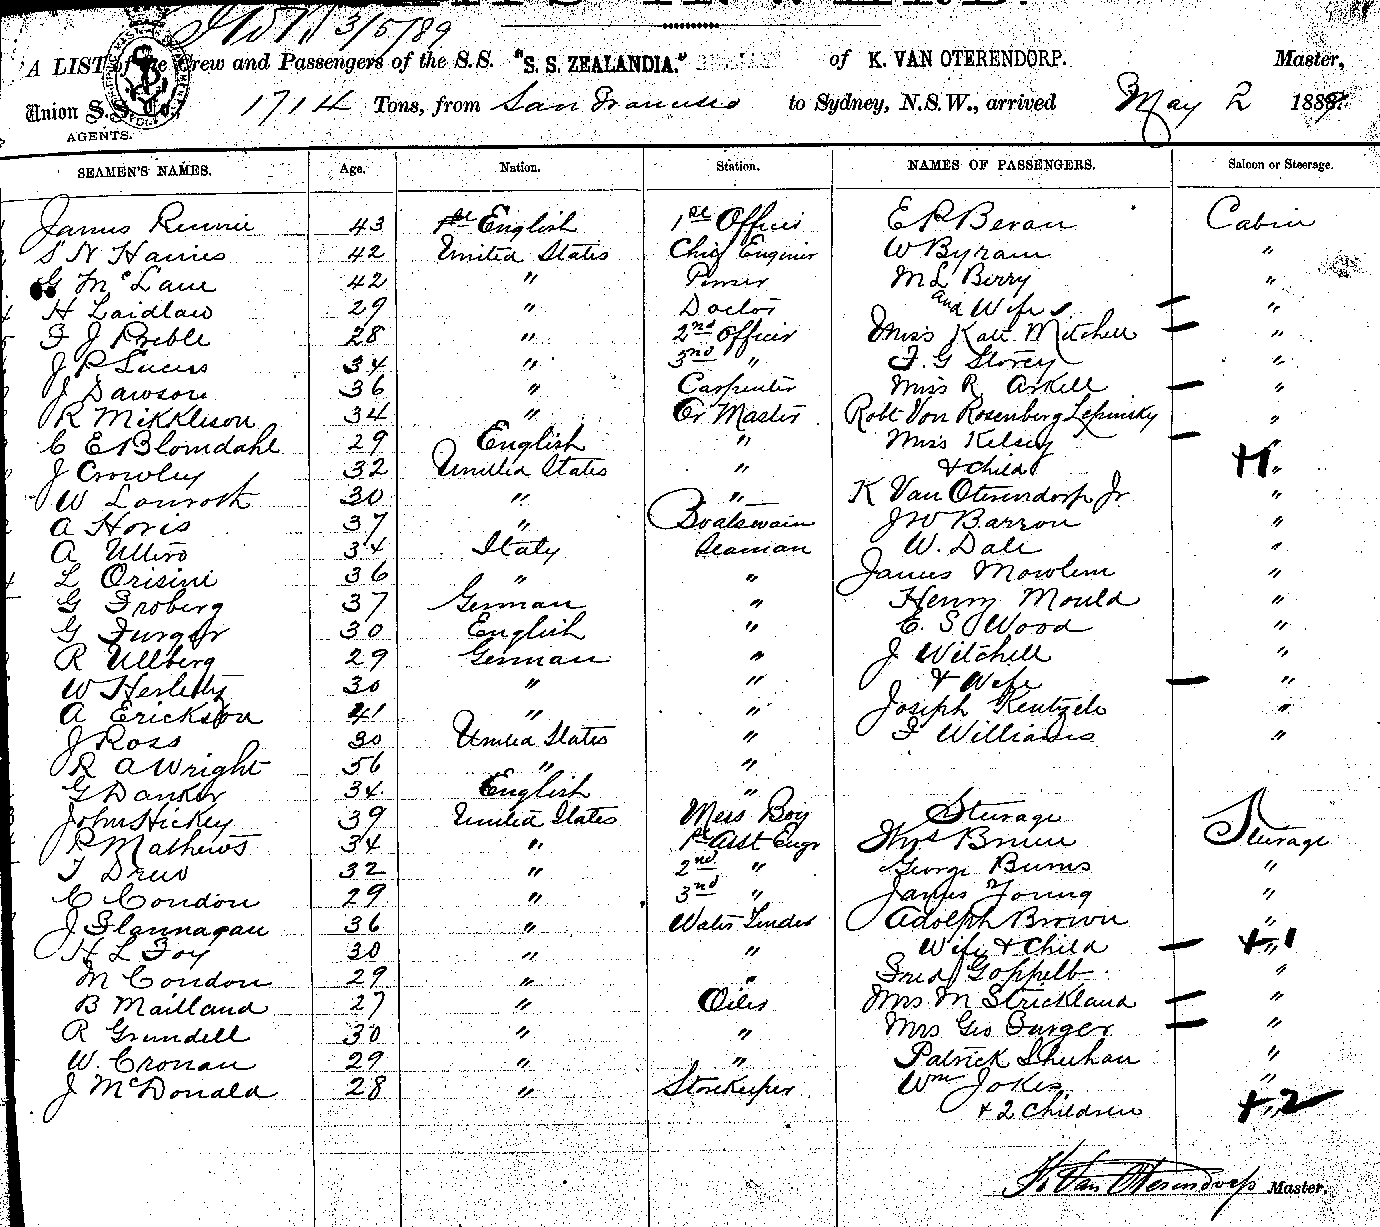 3/5/89
A LIST of the Crew and Passengers of the S.S. "S. S. ZEALANDIA." of K. VAN OTERENDORP. Master,
Union S.S. Co., 1714 Tons, from San Francisco to Sydney, N.S.W., arrived May 2 1889.
AGENTS.
SEAMEN'S NAMES. Age. Nation. Station. NAMES OF PASSENGERS. Saloon or Steerage.
James Rennie 43 English 1st Officer E P Bevan Cabin
S N Haines 42 United States Chief Enginer W Byram "
G McLane 42 " Purser M L Berry "
H Laidlaw 29 " Doctor and Wife "
F J Preble 28 " 2nd Officer Miss Kate Mitchell "
J P Lucas 34 " 3rd " F. G Storey "
J Dawson 36 " Carpenter Miss R Askell "
R Mikkleson 34 " Qr Master Robt Von Rosenberg Lepinsky "
C E Blomdahl 29 English " Miss Kelsey "
J Crowley 32 United States " & Child "
W Lonroth 30 " " K Van Oterendorp Jr "
A Horis 37 " Boatswain J W Barron "
A 34 Italy Seaman W. Dale "
L Orisini 36 " " James Mowlem "
G Froberg 37 German " Henry Mould "
G 30 English " E. S Wood "
R Ullberg 29 German " J Witchell "
W Herlitz 30 " " & Wife "
A Erickson 41 " " Joseph "
J Ross 30 United States " F Williams "
R A Wright 56 " "
G Danker 34 English "
John Hickey 39 United States Mess Boy Sturage
P Mathews 34 " 1st Asst Engr Thos Brunn Sturage
T Drew 32 " 2nd " George Burns "
C Condon 29 " 3rd " James Young "
J Flannagan 36 " Water Tender Adolph Brown "
H L Foy 30 " " Wife & Child +1 "
M Condon 29 " " Fred "
B Mailland 27 " Oiler Mrs M Strickland "
R Grundell 30 " " Mrs Geo Burger "
W. Cronan 29 " " Patrick Shuhan "
J McDonald 28 " Storekeeper Wm Jokes "
+ 2 Children +2
K. Van Oterendorp Master.